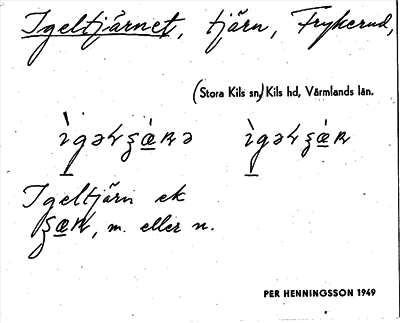 Igeltjärnet, tjärn, Frykerud,
(Stora Kils sn,) Kils hd, Värmlands län.
Igeltjärn ek
m. eller n.
PER HENNINGSSON 1949